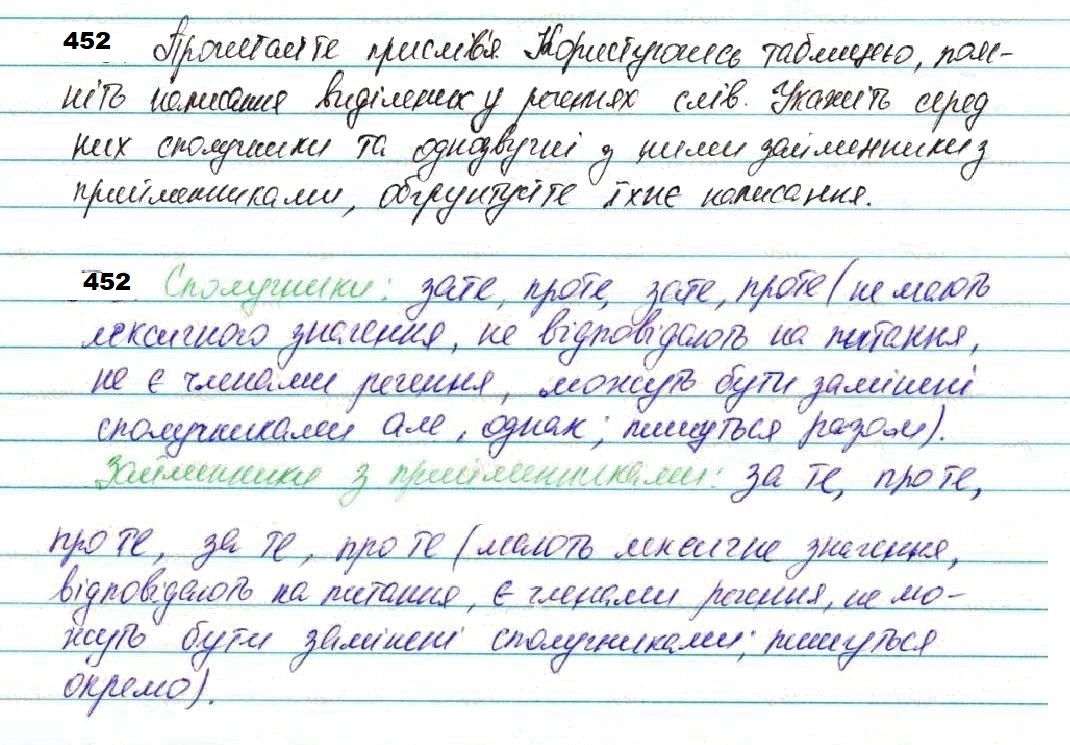 452 Прочитайте прислів'я. Користуючись таблицею, пояс-
ніть написання виділених у реченнях слів. Укажіть серед
них сполучники та однозвучні з ними займенники з
прийменниками, обґрунтуйте їхнє написання.
452 Сполучники: зате, проте, зате, проте (не мають
лексичного значення, не відповідають на питання,
не є членами речення, можуть бути замінені
сполучниками але, однак; пишуться разом).
Займенники з прийменниками: за те, про те,
про те, за те, про те (мають лексичне значення,
відповідають на питання, є членами речення, не мо-
жуть бути замінені сполучниками; пишуться
окремо).